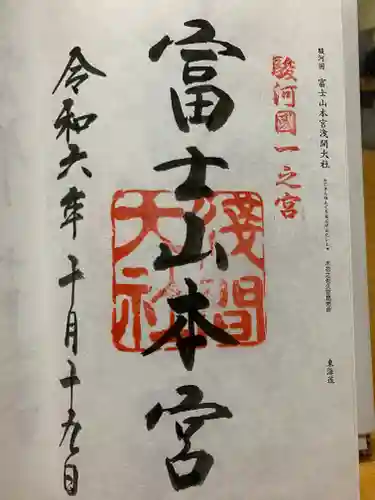 駿河国 富士山本宮浅間大社
東海道
駿河國一之宮
富士山本宮
淺間大社
令和六年十月十九日